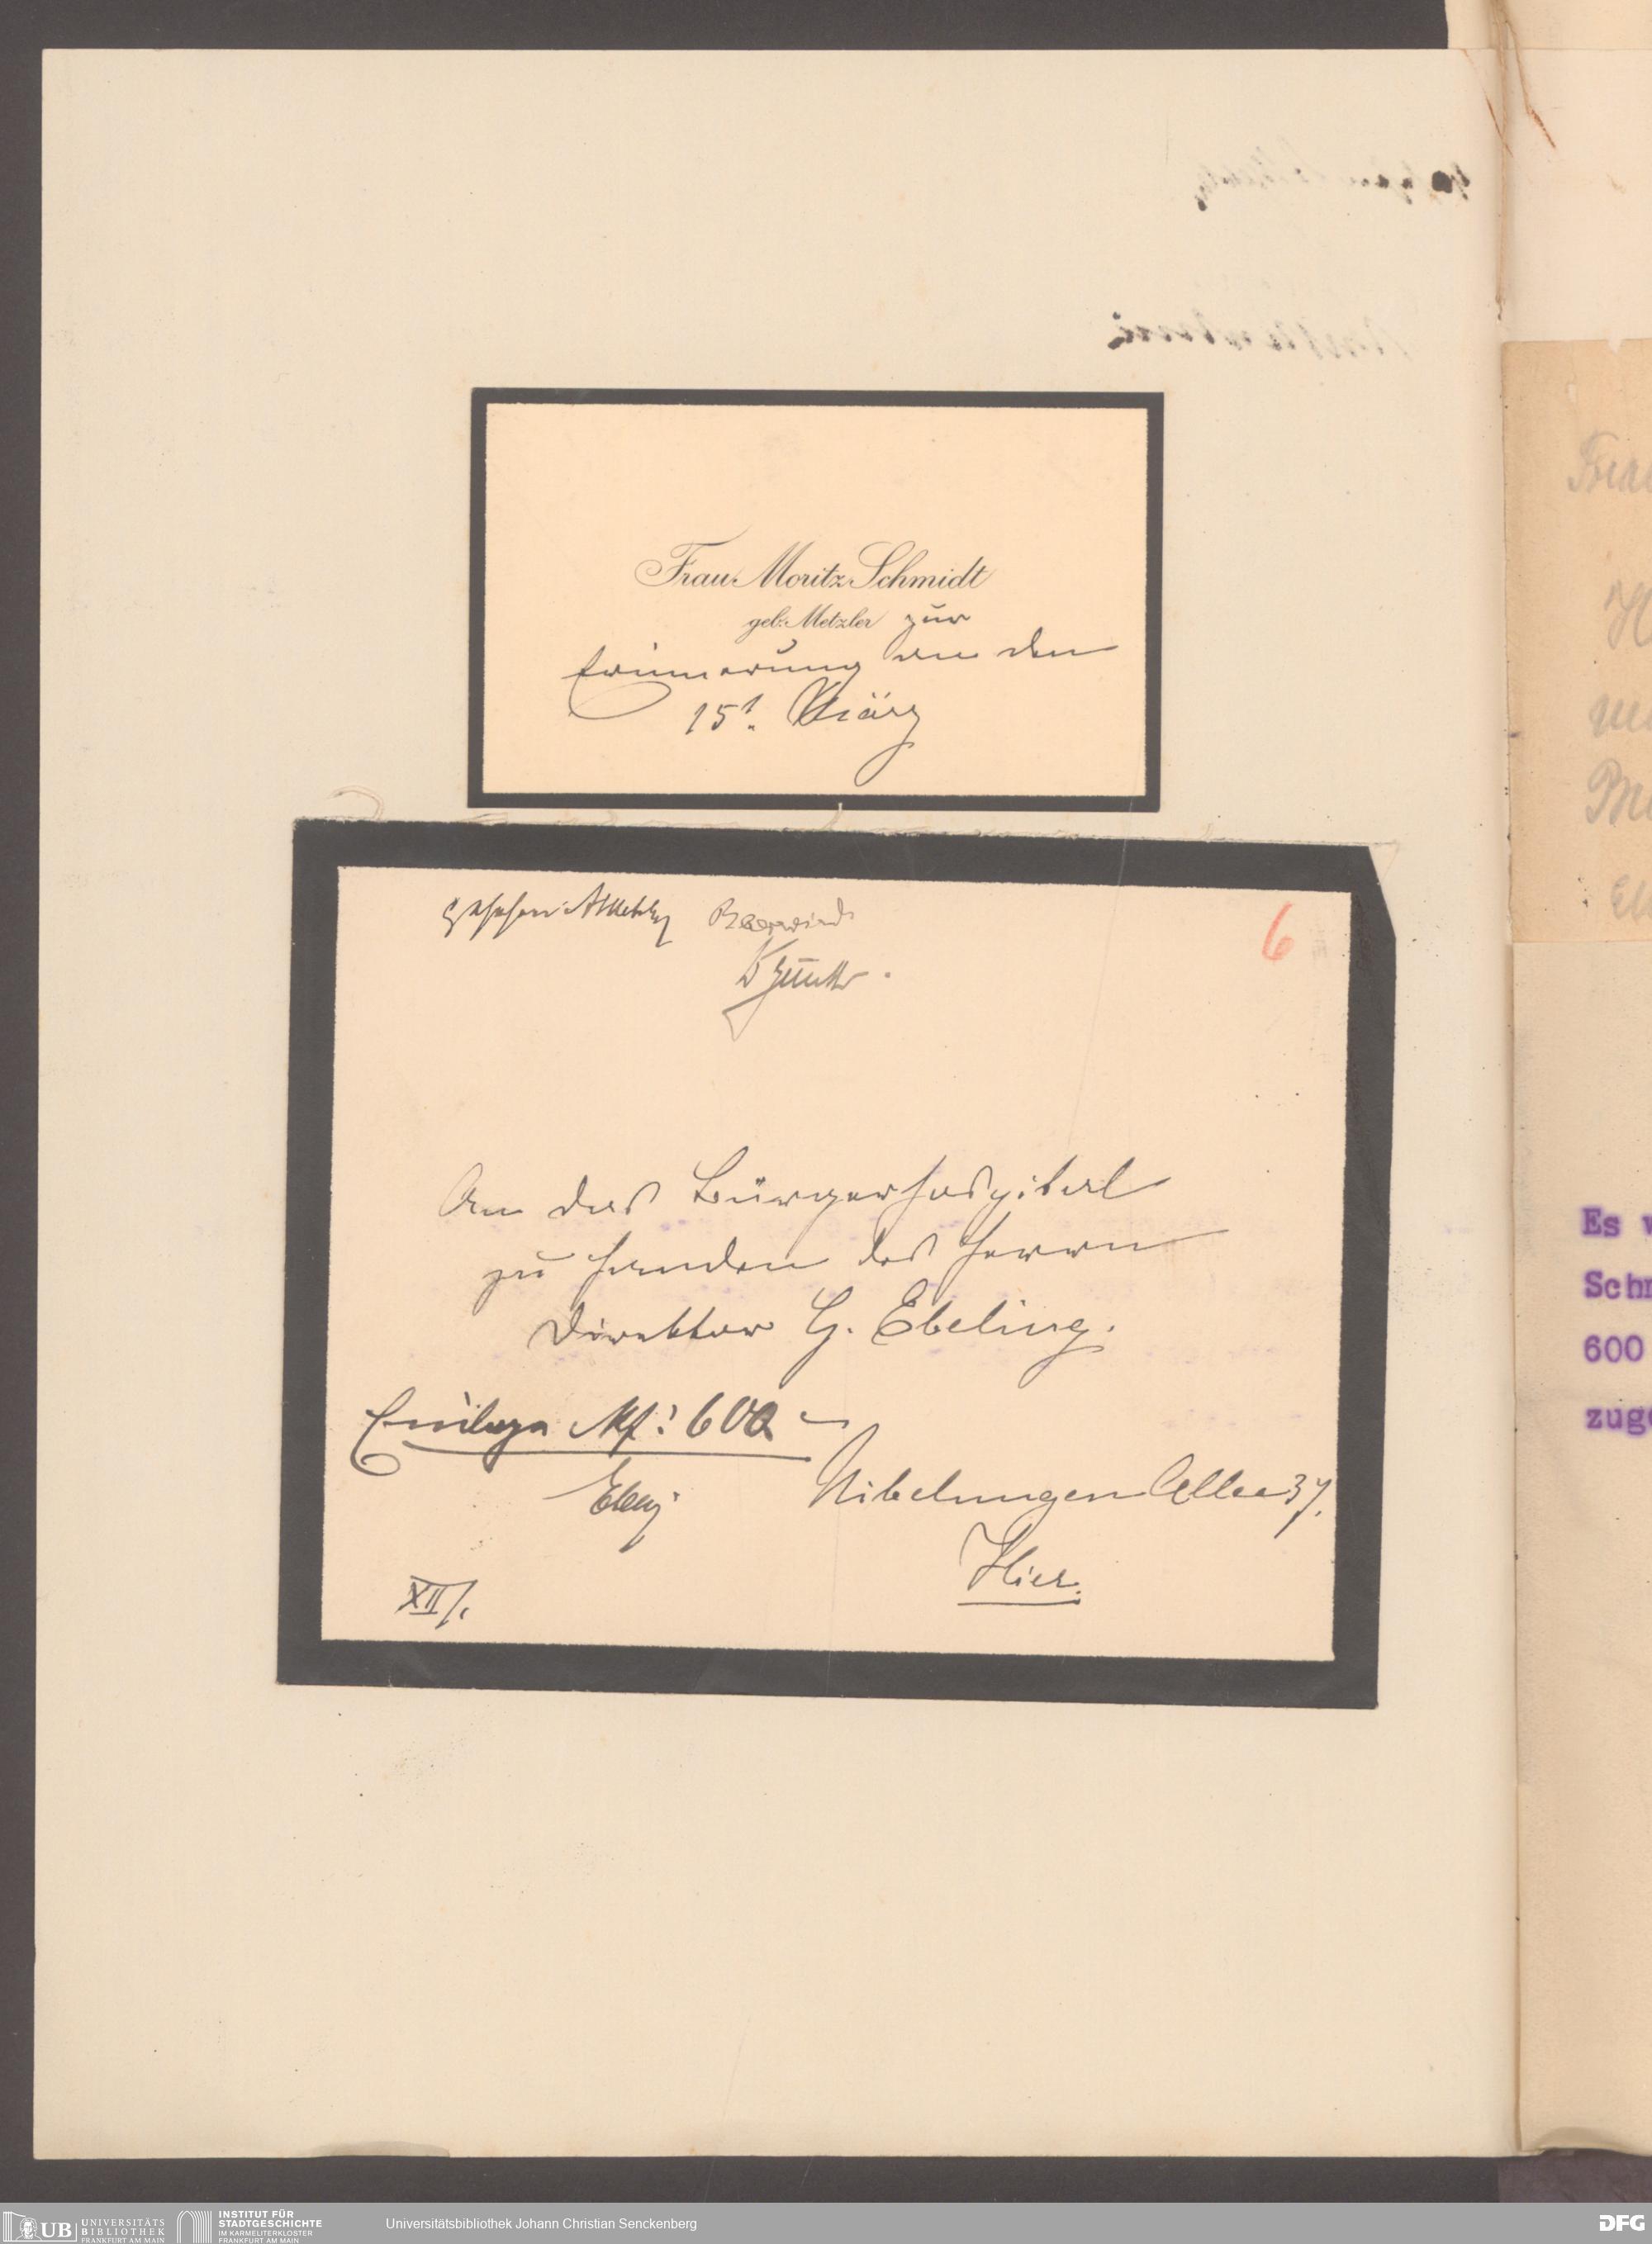 Frau Moritz Schmidt
geb: Metzler zur
Erinnerung an den
15t. März
Gesehen: A Metzler
6
An das Bürgerhospital
zu Handen des Herrn
Direktor G. Ebeling.
Einlage Mk: 600 –
Nibelungen Allee 37.
Hier.
XII/.
Es
Schm
600
zuge
UB UNIVERSITÄTS
BIBLIOTHEK
FRANKFURT AM MAIN
INSTITUT FÜR
STADTGESCHICHTE
IM KARMELITERKLOSTER
FRANKFURT AM MAIN
Universitätsbibliothek Johann Christian Senckenberg
DFG